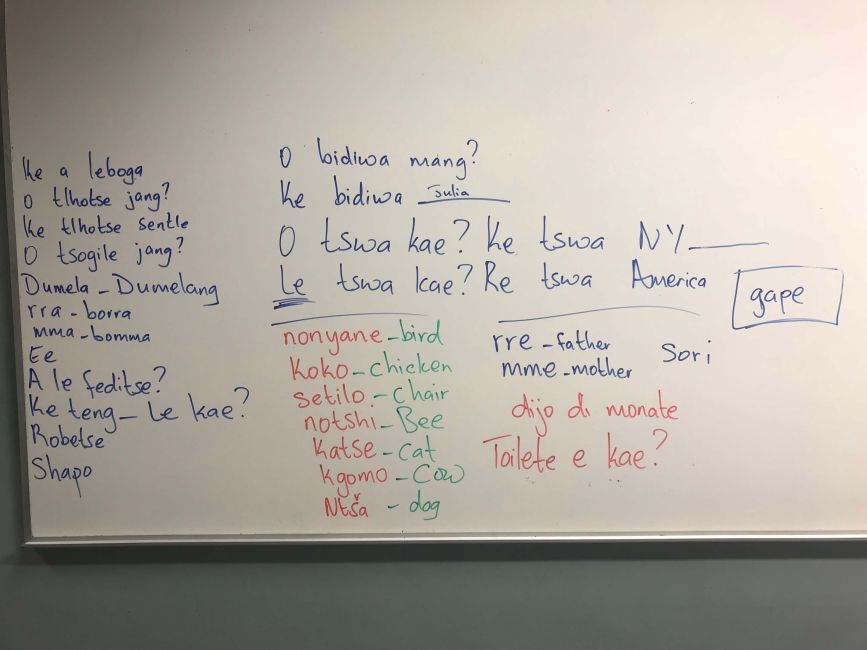 Ke a leboga
O tlhotse jang?
Ke tlhotse sentle
O tsogile jang?
Dumela - Dumelang
rra - borra
mma - bomma
Ee
A le feditse?
Ke teng - Le kae?
Robetse
Shapo
O bidiwa mang?
Ke bidiwa Julia
O tswa kae? Ke tswa NY
Le tswa kae? Re tswa America
gape
nonyane - bird
Koko - chicken
setilo - chair
notshi - Bee
Katse - cat
Kgomo - Cow
Ntša - dog
rre - father
mme - mother
Sori
dijo di monate
Toilete e kae?